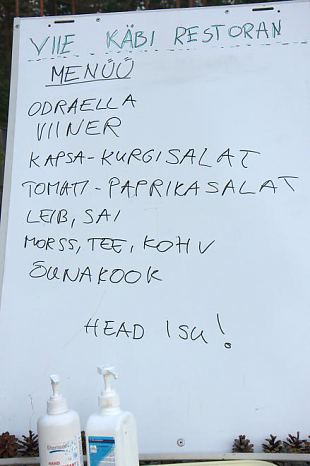 VIIE KÄBI RESTORAN
MENÜÜ
ODRAELLA
VIINER
KAPSA-KURGISALAT
TOMATI-PAPRIKASALAT
LEIB, SAI
MORSS, TEE, KOHV
ÕUNAKOOK
HEAD ISU!